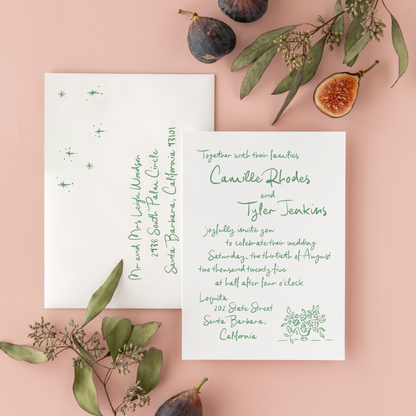 Mr and Mrs Leigh Woodson
2938 South Palm Circle
Santa Barbara, California 93101
Together with their families
Camille Rhodes
and
Tyler Jenkins
joyfully invite you
to celebrate their wedding
Saturday, the thirtieth of August
two thousand twenty-five
at half after four o'clock
Loquita
202 State Street
Santa Barbara,
California